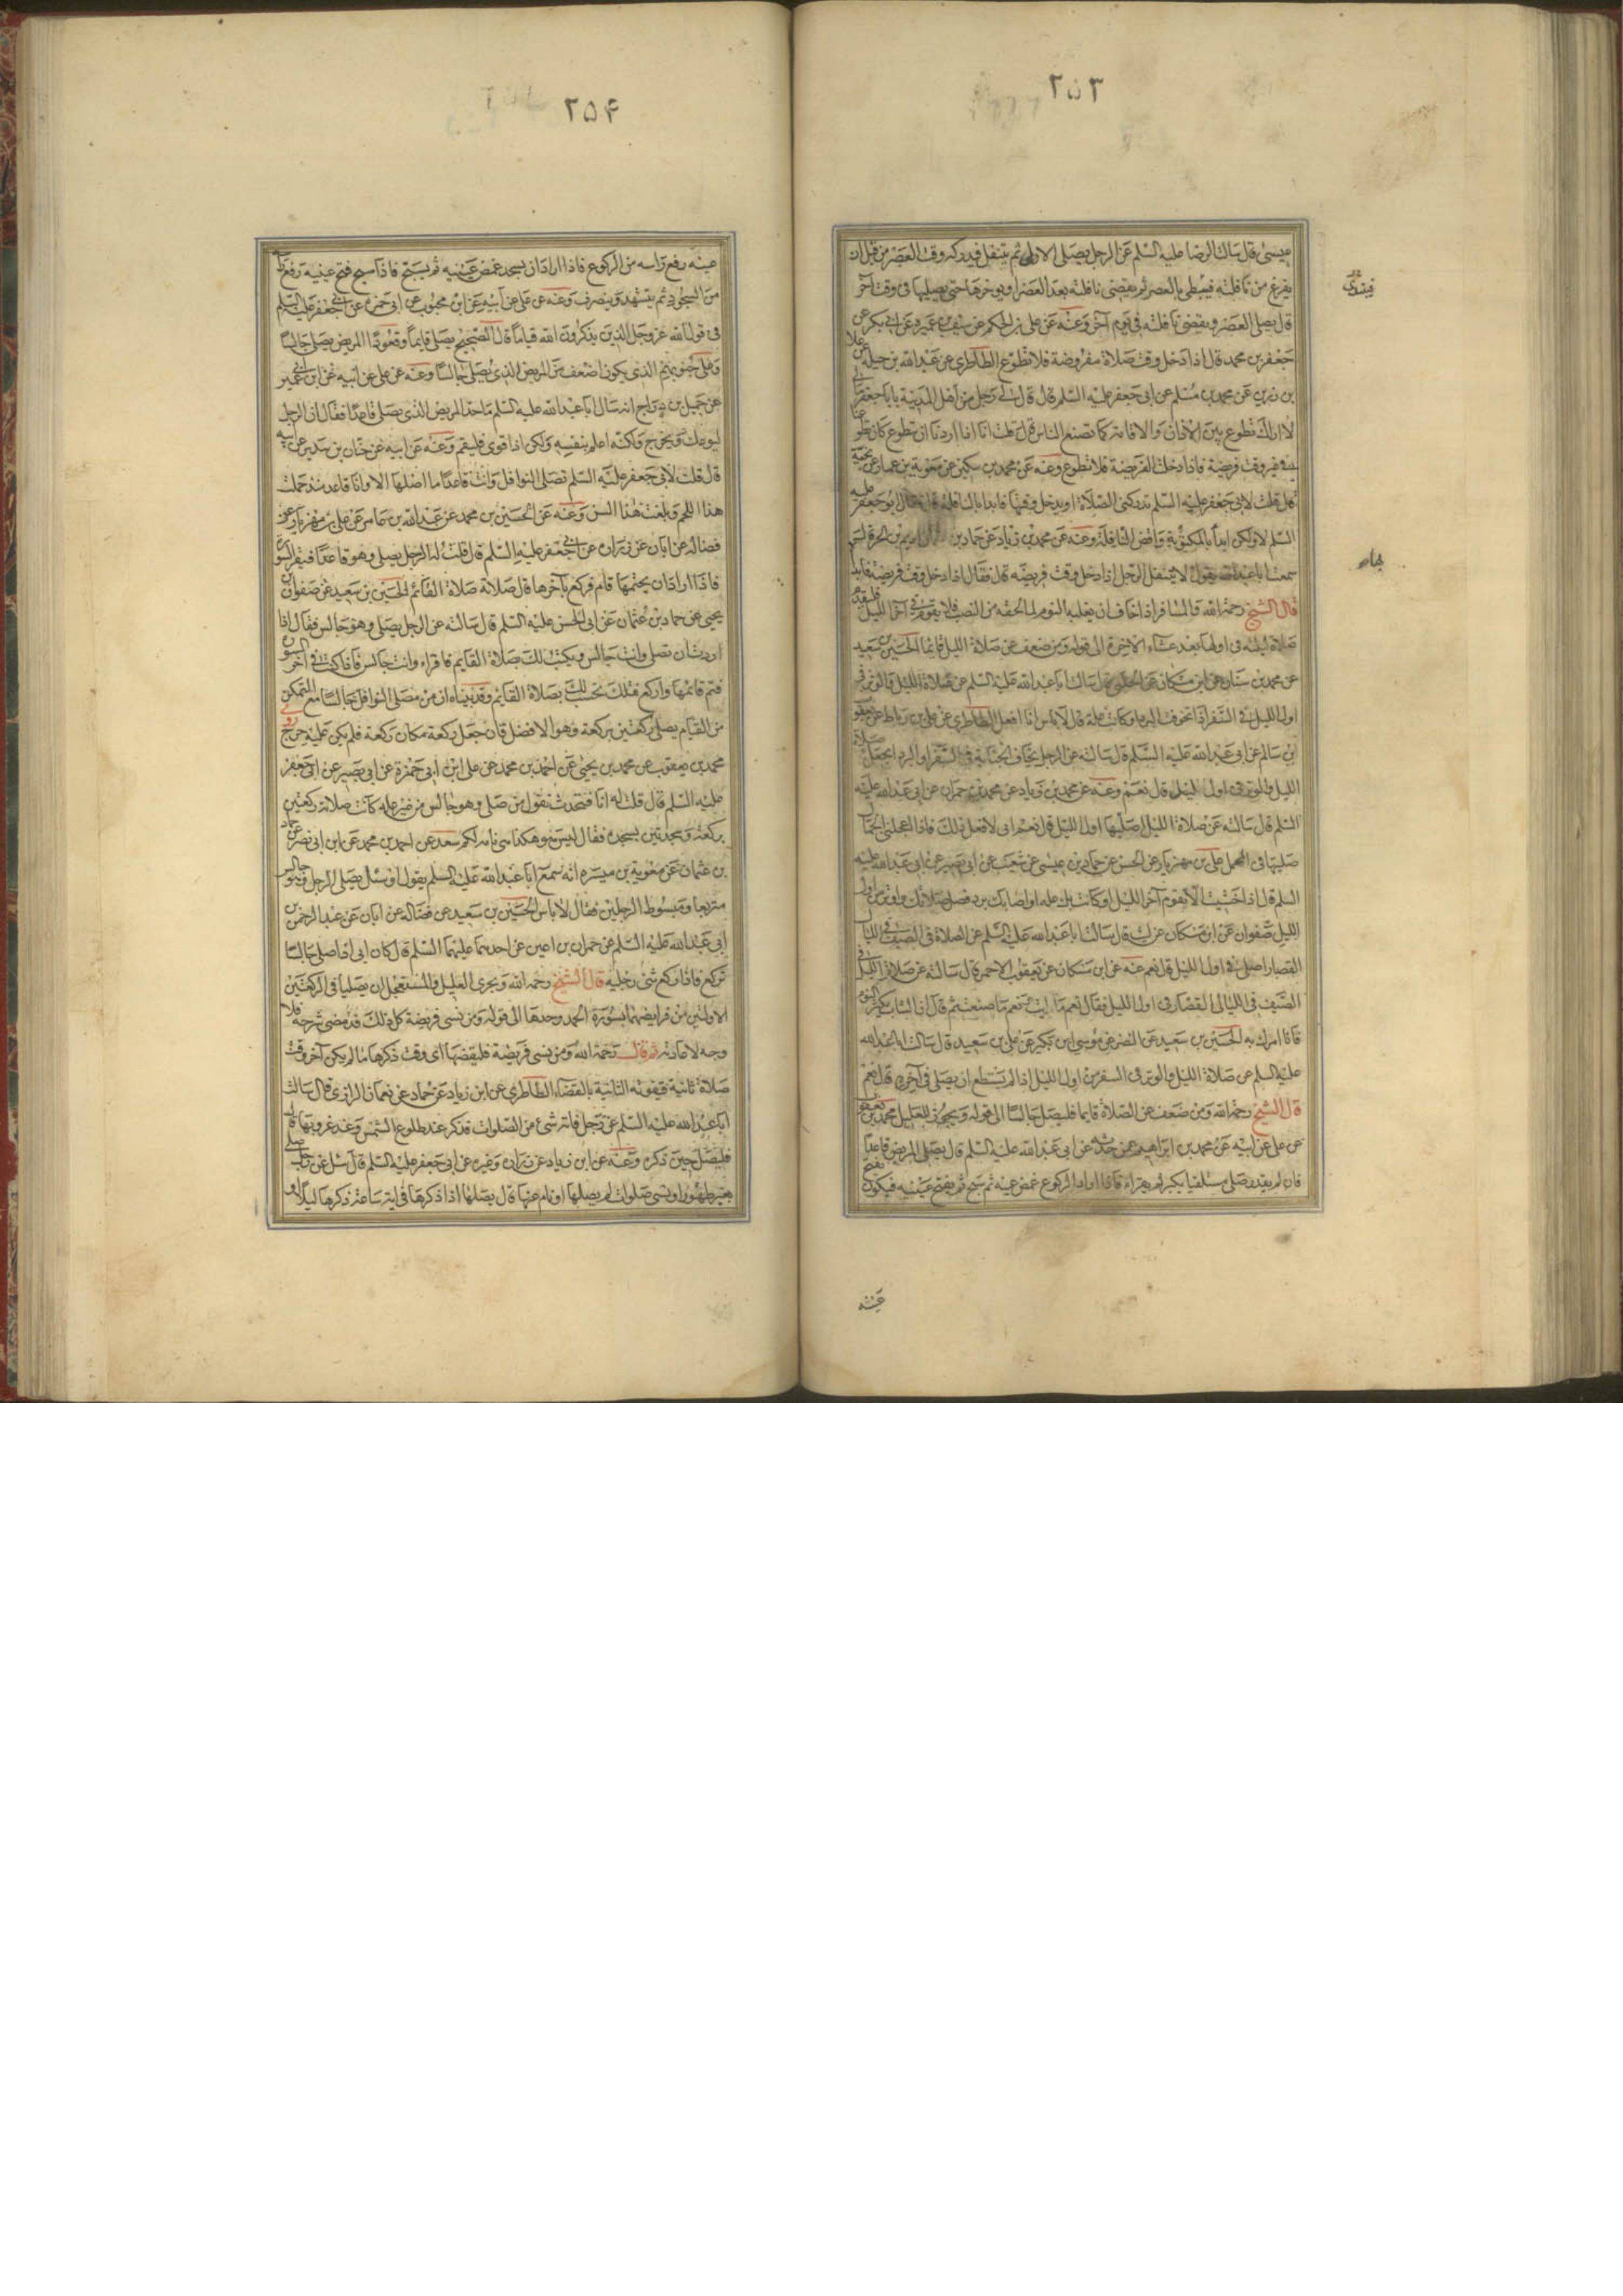 ۲۵۳
عيسى قال سالت الرضا عليه السلم عن الرجل يصلى الاولى ثم يتنفل فيدركه وقت العصر من قبل ان
يفرغ من نافلته فيبطى بالعصر ثم يقضى نافلته بعد العصر او يوخرها حتى يصليها فى وقت آخر
قال يصلى العصر ويقضى نافلته فى يوم آخر وعنه عن على بن الحكم عن سيف بن عميره عن ابى بكر عن
جعفر بن محمد قال اذا دخل وقت صلاة مفروضة فلا تطوع الطاطرى عن عبد الله بن جبلة عن علا
بن رزين عن محمد بن مسلم عن ابى جعفر عليه السلم قال قال لى رجل من اهل المدينة يا با جعفر ما لى
لا اراك تطوع بين الاذان والاقامة كما تصنع الناس قال قلت انا اذا اردنا ان تطوع كان تطوعنا
فى غير وقت فريضة فاذا دخلت الفريضة فلا تطوع وعنه عن محمد بن سكين عن معوية بن عمار عن نجية
قال قلت لابى جعفر عليه السلم تدركنى الصلاة او يدخل وقتها فابدا بالنافلة قال فقال ابو جعفر عليه
السلم لا ولكن ابدأ بالمكتوبة واقض النافلة وعنه عن محمد بن زياد عن حماد بن عن اديم بن الحر قال
سمعت ابا عبد الله يقول لا يتنفل الرجل اذا دخل وقت فريضه قال وقال اذا دخل وقت فريضة فابدا بها
قال الشيخ رحمه الله والمسافر اذا خاف ان يغلبه النوم لما لحقه من النصب فلا يقوم فى آخر الليل فليقدم
صلاة ليلته فى اولها بعد عشاء الاخرة الى قوله ومن ضعف عن صلاة الليل قايما الحسين بن سعيد
عن محمد بن سنان عن ابن مسكان عن الحلبى قال سالت ابا عبد الله عليه السلم عن صلاة الليل والوتر فى
اول الليل فى السفر اذا تخوفت البرد وكانت علة قال لا باس انا افعل الطاطرى عن على بن رباط عن يعقوب
بن سالم عن ابى عبد الله عليه السلم قال سالته عن الرجل يخاف الجنابة فى السفر او البرد ايجعل صلاة
الليل والوتر فى اول الليل قال نعم وعنه عن محمد بن زياد عن محمد بن حمران عن ابى عبد الله عليه
السلم قال سالته عن صلاة الليل اصليها اول الليل قال نعم انى لافعل ذلك فاذا اعجلنى الجمال
صليتها فى المحمل على بن مهزيار عن الحسن عن حماد بن عيسى عن شعيب عن ابى بصير عن ابى عبد الله عليه
السلم قال اذا خشيت الا يقوم آخر الليل او كانت بك علة او اصابك برد فصل صلاتك واوتر من اول
الليل صفوان عن ابن مسكان عن ليث قال سالت ابا عبد الله عليه السلم عن الصلاة فى الصيف فى الليال
القصار اصلى فى اول الليل قال نعم عنه عن ابن مسكان عن يعقوب الاحمر قال سالته عن صلاة الليل فى
الصيف فى الليالى القصار فى اول الليل فقال نعم ما رايت ونعم ما صنعت ثم قال ان الشاب يكثر النوم
فانا امرك به الحسين بن سعيد عن النضر عن موسى بن بكير عن على بن سعيد قال سالت ابا عبد الله
عليه السلم عن صلاة الليل والوتر فى السفر من اول الليل اذا لم يستطع ان يصلى فى آخره قال نعم
قال الشيخ رحمه الله ومن ضعف عن الصلاة قايما فليصل جالسا الى قوله ويجوز للعليل محمد بن يعقوب
عن على عن ابيه عن محمد بن ابراهيم عمن حدثه عن ابى عبد الله عليه السلم قال يصلى المريض قاعدا
فان لم يقدر صلى مستلقيا يكبر ثم يقراء فاذا اراد الركوع غمض عينه ثم سبح ثم يفتح عينيه فيكون فتح
عينه
۲۵۴
عينه رفع راسه من الركوع فاذا اراد ان يسجد غمض عينيه ثم يسبح فاذا سبح فتح عينيه رفع راسه
من السجود ثم يتشهد وينصرف وعنه عن على عن ابيه عن ابن محبوب عن ابى حمزه عن ابى جعفر عليه السلم
فى قول الله عز وجل الذين يذكرون الله قياما قال الصحيح يصلى قايما وقعودا المريض يصلى جالسا
وعلى جنوبهم الذى يكون اضعف من المريض الذى يصلى جالسا وعنه عن على عن ابيه عن ابن ابى عمير
عن جميل بن دراج انه سال ابا عبد الله عليه السلم ما حد المريض الذى يصلى قاعدا فقال ان الرجل
ليوعك ويخرج ولكنه اعلم بنفسه ولكن اذا قوى فليقم وعنه عن ابيه عن حنان بن سدير عن ابيه
قال قلت لابى جعفر عليه السلم تصلى النوافل وانت قاعد ما اصلها الا وانا قاعد منذ حملت
هذا اللحم وبلغت هذا السن وعنه عن الحسين بن محمد عن عبد الله بن عامر عن على بن مهزيار عن
فضاله عن ابان عن زراره عن ابى جعفر عليه السلم قال قلت له الرجل يصلى وهو قاعد فيقرا السورة
فاذا اراد ان يختمها قام فركع بآخرها قال صلاته صلاة القائم الحسين بن سعيد عن صفوان بن
يحيى عن حماد بن عثمان عن ابى الحسن عليه السلم قال سالته عن الرجل يصلى وهو جالس فقال اذا
اردت ان تصلى وانت جالس ويكتب لك صلاة القايم فاقراء وانت جالس فاذا كنت فى آخر السورة
فقم فاتمها واركع فتلك تحسب لك بصلاة القايم وقد بيناه ان من يصلى النوافل جالسا مع التمكن
من القيام يصلى ركعتين بركعة وهو الافضل فان جعل ركعة مكان ركعة فلم يكن عليه حرج روى
محمد بن يعقوب عن محمد بن يحيى عن احمد بن محمد عن على ابن ابى حمزة عن ابى بصير عن ابى جعفر
عليه السلم قال قلت له انا نتحدث نقول من صلى وهو جالس من غير علة كانت صلاته ركعتين
بركعة وسجدتين بسجده فقال ليس هو هكذا هى تامه لكم سعد عن احمد بن محمد عن ابن ابى نصر عن حماد
بن عثمان عن معوية بن ميسره انه سمع ابا عبد الله عليه السلم يقول او سئل يصلى الرجل وهو جالس
متربعا ومبسوط الرجلين فقال لا باس الحسين بن سعيد عن فضاله عن ابان عن عبد الرحمن بن
ابى عبد الله عليه السلم عن حمران بن اعين عن احدهما عليهما السلم قال كان ابى اذا صلى جالسا
تربع فاذا ركع ثنى رجليه قال الشيخ رحمه الله ويجزى العليل والمستعجل ان يصليا فى الركعتين
الاولتين من فرايضهما بسورة الحمد وحدها الى قوله ومن نسى فريضة كل ذلك قد مضى شرحه فلا
وجه لاعادته ثم قال رحمة الله ومن نسى فريضة فليقضها اى وقت ذكرها ما لم يكن آخر وقت
صلاة ثانية فيفوته الثانية بالقضاء الطاطرى عن ابن زياد عن حماد عن نعمان الرازى قال سالت
ابا عبد الله عليه السلم عن رجل فاته شئ من الصلوات فذكر عند طلوع الشمس وعند غروبها قال
فليصل حين ذكره وعنه عن ابن زياد عن زراره وغيره عن ابى جعفر عليه السلم قال سئل عن رجل صلى
بغير طهور او نسى صلوات لم يصلها او نام عنها قال يصلها اذا ذكرها فى اية ساعة ذكرها ليلا او